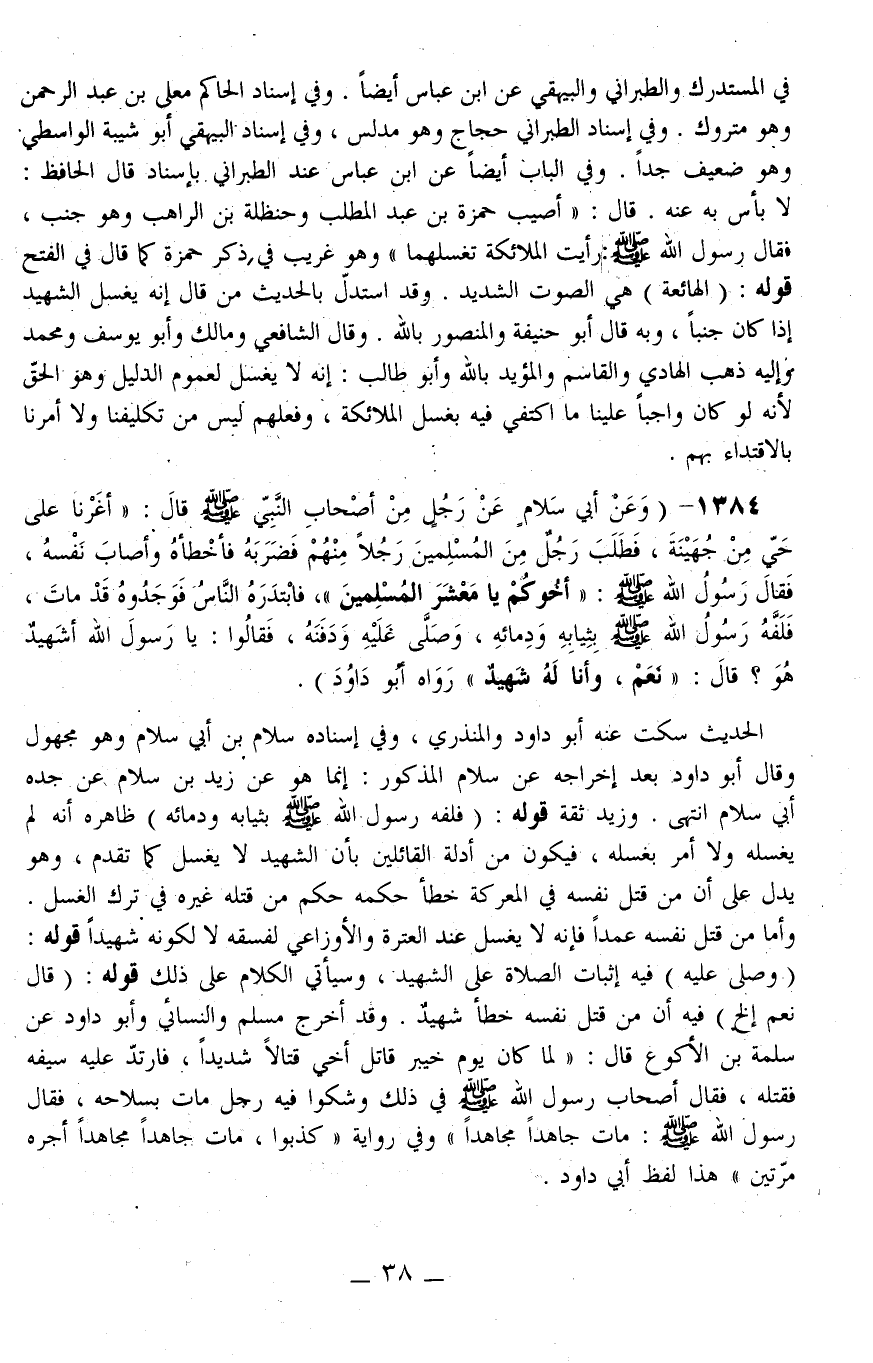 في المستدرك والطبراني والبيهقي عن ابن عباس أيضاً . وفي إسناد الحاكم معلى بن عبد الرحمن
وهو متروك . وفي إسناد الطبراني حجاج وهو مدلس ، وفي إسناد البيهقي أبو شيبة الواسطي
وهو ضعيف جداً . وفي الباب أيضاً عن ابن عباس عند الطبراني بإسناد قال الحافظ :
لا بأس به عنه . قال : « أصيب حمزة بن عبد المطلب وحنظلة بن الراهب وهو جنب ،
فقال رسول الله ﷺ : رأيت الملائكة تغسلهما » وهو غريب في ذكر حمزة كما قال في الفتح
قوله : ( الهائعة ) هي الصوت الشديد . وقد استدلّ بالحديث من قال إنه يغسل الشهيد
إذا كان جنباً ، وبه قال أبو حنيفة والمنصور بالله . وقال الشافعي ومالك وأبو يوسف ومحمد
وإليه ذهب الهادي والقاسم والمؤيد بالله وأبو طالب : إنه لا يغسل لعموم الدليل وهو الحقّ
لأنه لو كان واجباً علينا ما اكتفي فيه بغسل الملائكة ، وفعلهم ليس من تكليفنا ولا أمرنا
بالاقتداء بهم .
١٣٨٤- ( وَعَنْ أبي سَلامٍ عَنْ رَجُلٍ مِنْ أصْحابِ النَّبِيّ ﷺ قالَ : « أغَرْنا على
حَيّ مِنْ جُهَيْنَةَ ، فَطَلَبَ رَجُلٌ مِنَ المُسْلِمينَ رَجُلاً مِنْهُمْ فَضَرَبَهُ فأخْطأهُ وأصابَ نَفْسهُ ،
فَقالَ رَسُولُ الله ﷺ : « أخُوكُمْ يا مَعْشَرَ المُسْلِمينَ »، فابْتدَرَهُ النَّاسُ فَوَجَدُوهُ قَدْ ماتَ ،
فَلَفَّهُ رَسُولُ الله ﷺ بِثيابِهِ وَدِمائهِ ، وَصَلَّى عَلَيْهِ وَدَفَنَهُ ، فَقالُوا : يا رَسولَ الله أشَهيدٌ
هُوَ ؟ قالَ : « نَعَمْ ، وأنا لَهُ شَهيدٌ » رَوَاه أبُو دَاوُدَ ) .
الحديث سكت عنه أبو داود والمنذري ، وفي إسناده سلام بن أبي سلام وهو مجهول
وقال أبو داود بعد إخراجه عن سلام المذكور : إنما هو عن زيد بن سلام عن جده
أبي سلام انتهى . وزيد ثقة قوله : ( فلفه رسول الله ﷺ بثيابه ودمائه ) ظاهره أنه لم
يغسله ولا أمر بغسله ، فيكون من أدلة القائلين بأن الشهيد لا يغسل كما تقدم ، وهو
يدل على أن من قتل نفسه في المعركة خطأ حكمه حكم من قتله غيره في ترك الغسل .
وأما من قتل نفسه عمداً فإنه لا يغسل عند العترة والأوزاعي لفسقه لا لكونه شهيداً قوله :
( وصلى عليه ) فيه إثبات الصلاة على الشهيد ، وسيأتي الكلام على ذلك قوله : ( قال
نعم إلخ ) فيه أن من قتل نفسه خطأ شهيدٌ . وقد أخرج مسلم والنسائي وأبو داود عن
سلمة بن الأكوع قال : « لما كان يوم خيبر قاتل أخي قتالاً شديداً ، فارتدّ عليه سيفه
فقتله ، فقال أصحاب رسول الله ﷺ في ذلك وشكوا فيه رجل مات بسلاحه ، فقال
رسول الله ﷺ : مات جاهداً مجاهداً » وفي رواية « كذبوا ، مات جاهداً مجاهداً أجره
مرّتين » هذا لفظ أبي داود .
— ٣٨ —